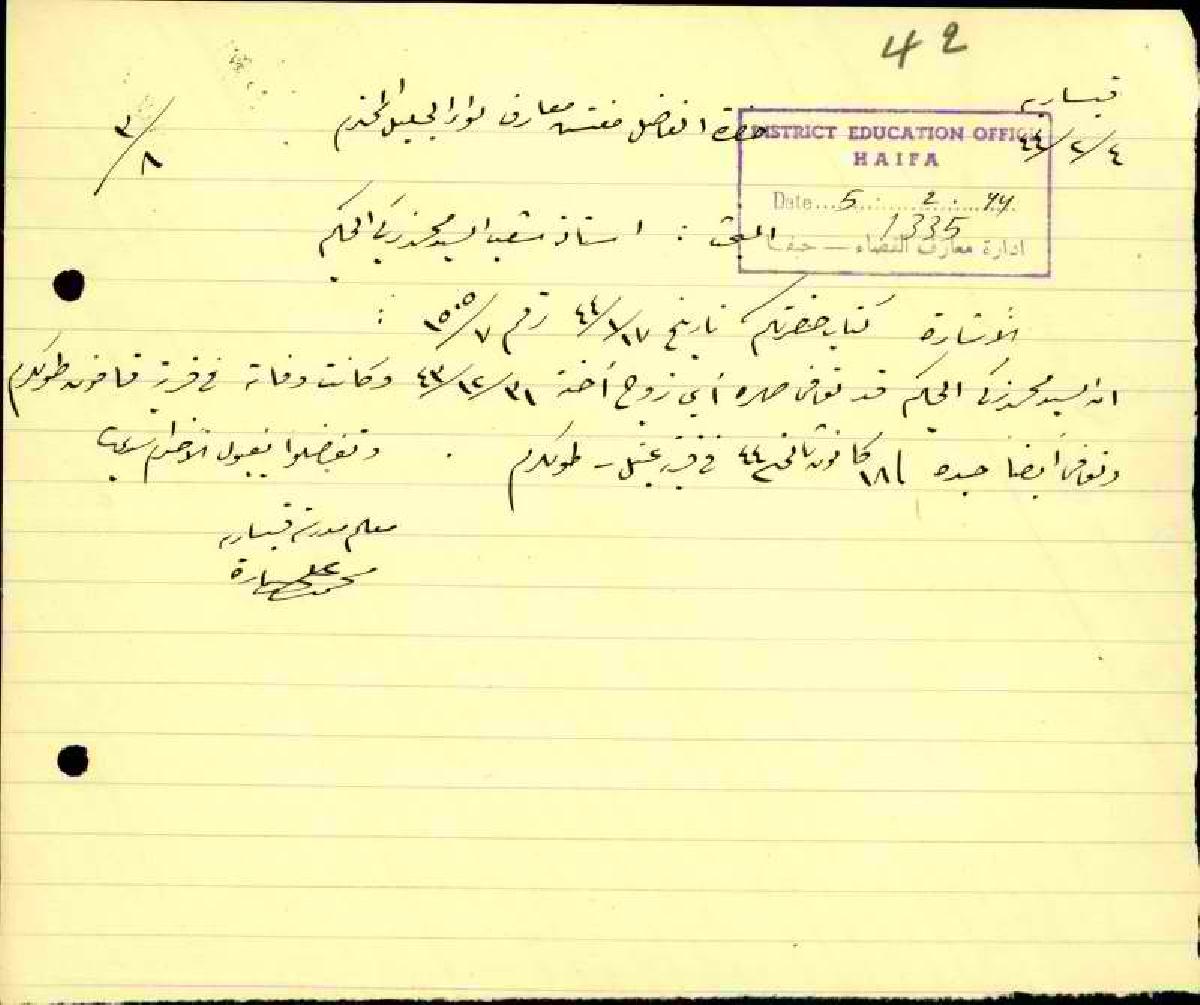 42
قيسارية
٤٤/٢/٤
حضرة الفاضل مفتش معارف لواء الجليل المحترم
٣/٨
DISTRICT EDUCATION OFFICE
HAIFA
Date... 5. 2. 44
1335
ادارة معارف القضاء — حيفا
المبحث : استاذ شعب السيد محمد زكي الحكيم
الأشارة كتاب حضرتكم تاريخ ٤٤/١/١٧ رقم ١٥٠٥/٧ :
ان السيد محمد زكي الحكيم قد توفى صهره أي زوج أخته ٤٣/١٢/٣١ وكانت وفاته في قرية قاقون طولكرم
وتوفى أيضاً جده ١٨ كانون ثاني ٤٤ في قرية عتيل - طولكرم . وتفضلوا بقبول الأحترام سيدي
معلم مدرسة قيسارية
محمد علي